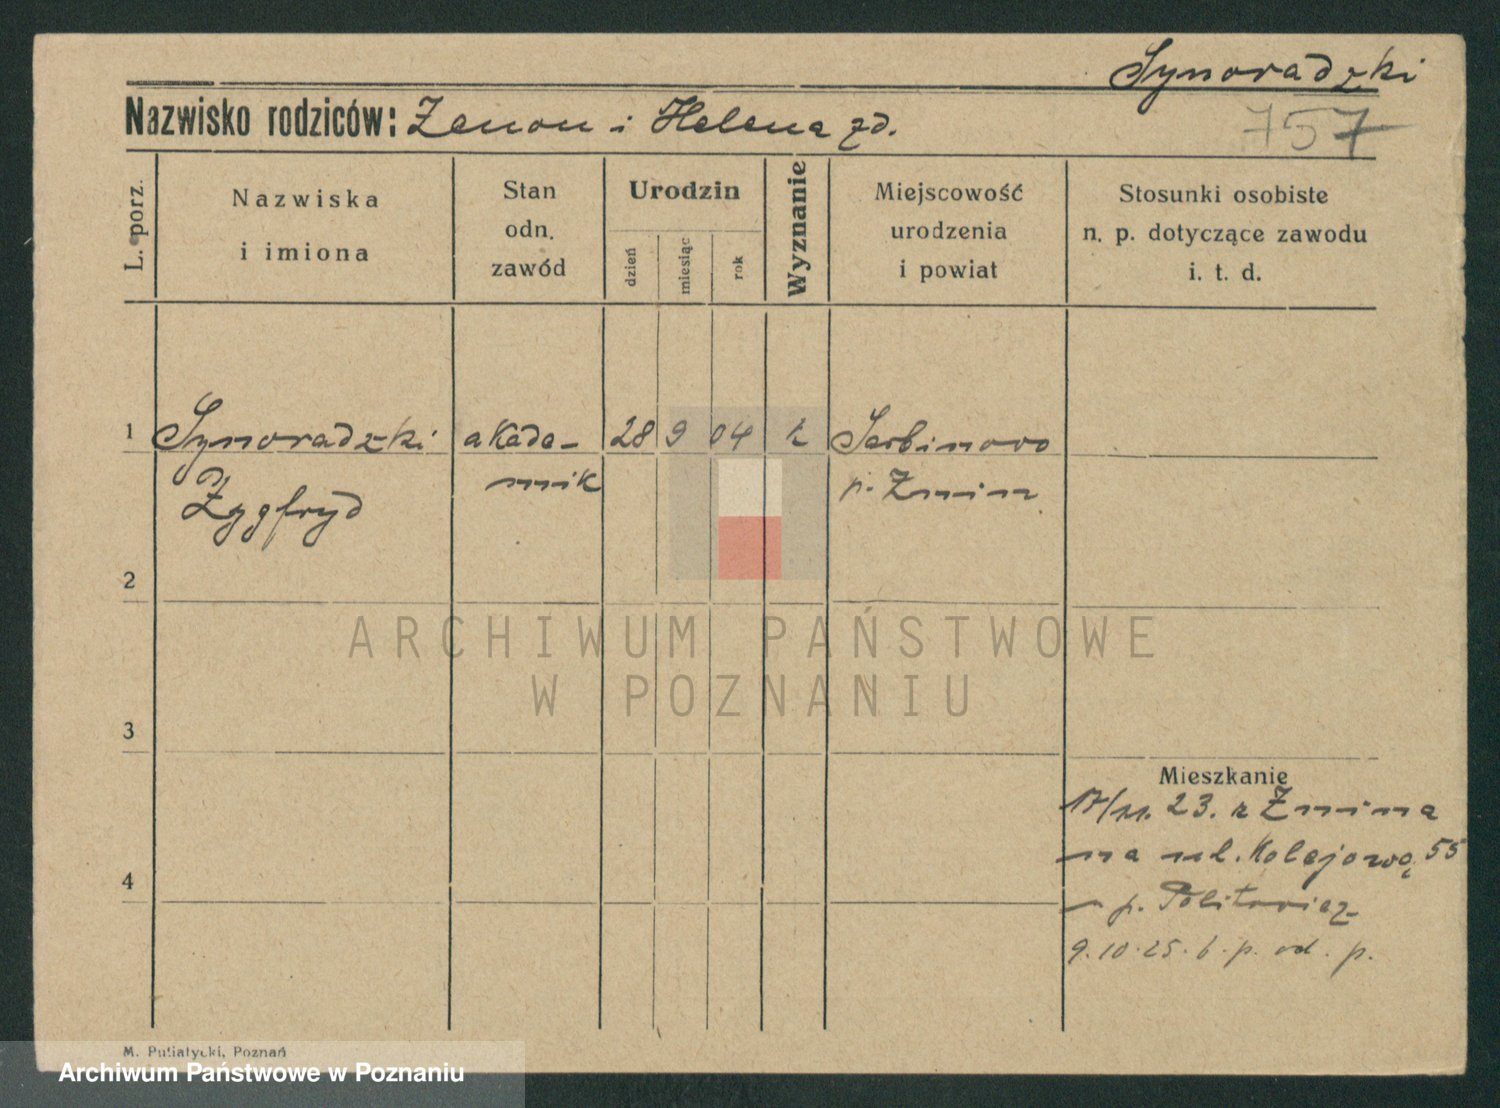 Synoradzki
Nazwisko rodziców: Zenon i Helena zd.
757
L. porz.
Nazwiska
i imiona
Stan
odn.
zawód
Urodzin
dzień
miesiąc
rok
Wyznanie
Miejscowość
urodzenia
i powiat
Stosunki osobiste
n. p. dotyczące zawodu
i. t. d.
1 Synoradzki akade- 28 9 04 k Serbinowo
mnik p. Żnin
Zygfryd
2
ARCHIWUM PAŃSTWOWE
W POZNANIU
3
Mieszkanie
17/11. 23. z Żnina
na ul. Kolejową 55
p.
4
9.10.25. b. p. od. p.
M. Putiatycki, Poznań
Archiwum Państwowe w Poznaniu